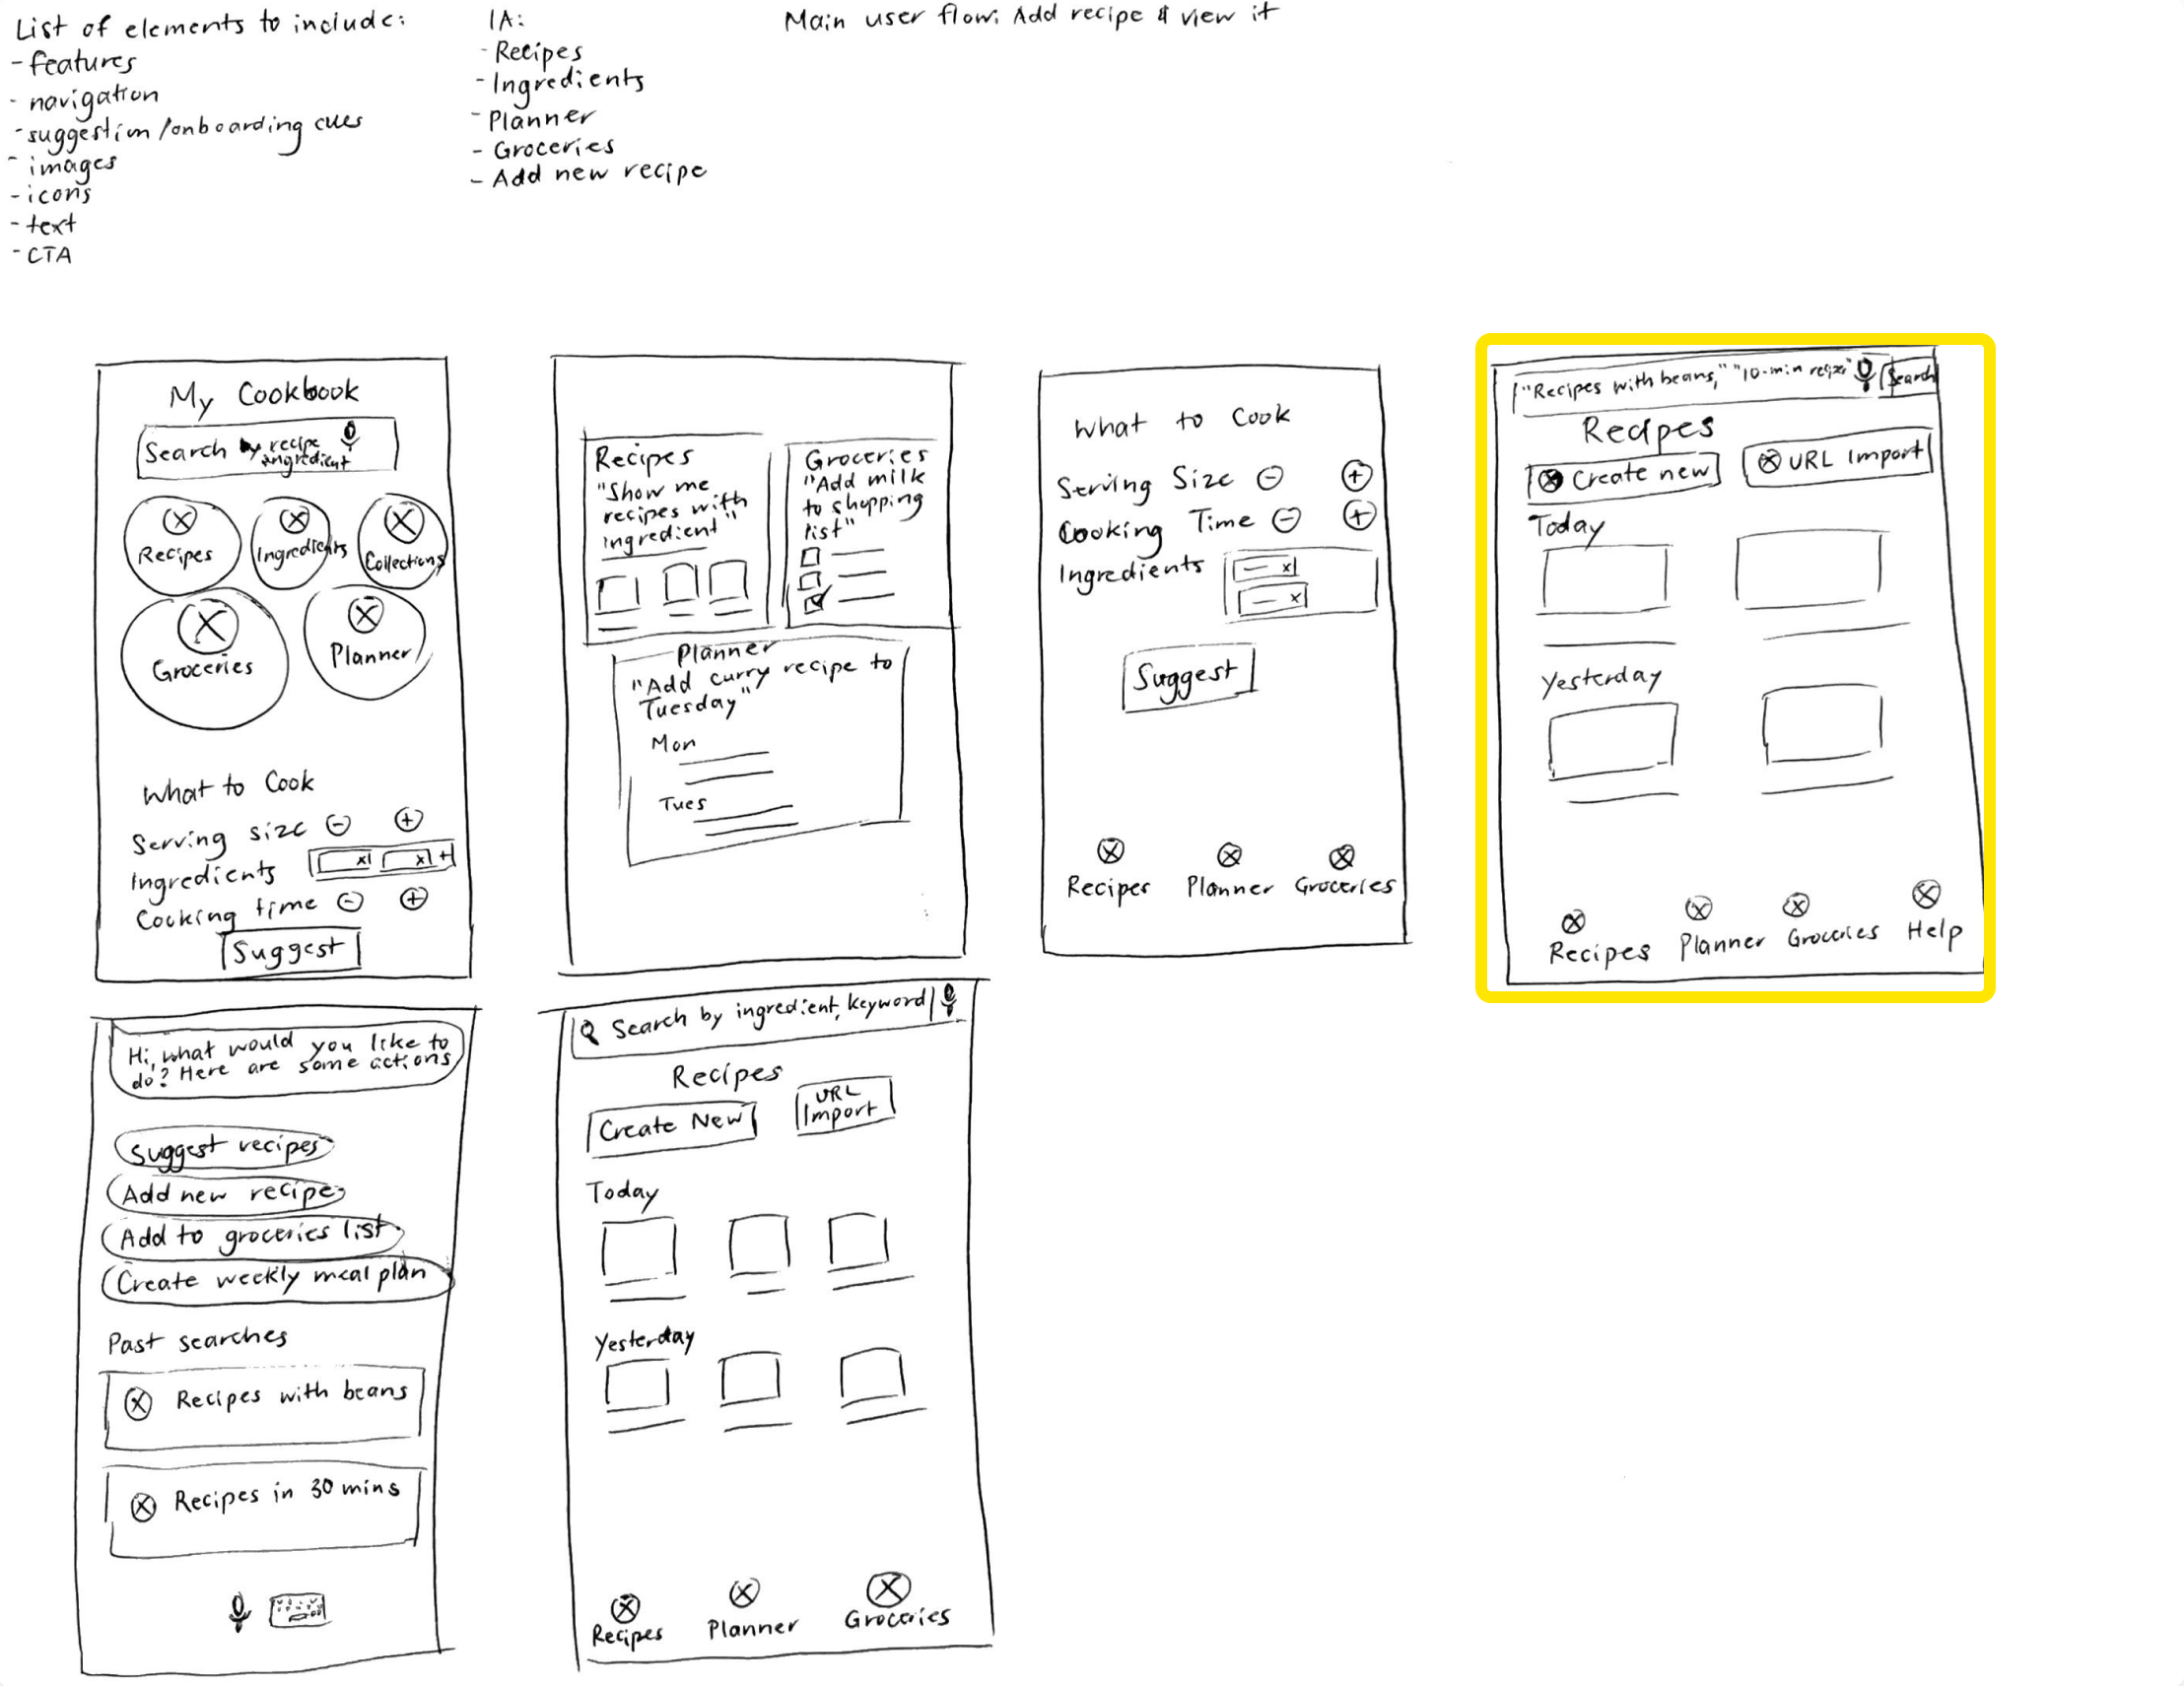 List of elements to include:
- features
- navigation
- suggestion/onboarding cues
- images
- icons
- text
- CTA
IA:
- Recipes
- Ingredients
- Planner
- Groceries
- Add new recipe
Main user flow: Add recipe & view it
My Cookbook
Search by recipe
ingredient
Recipes
Ingredients
Collections
Groceries
Planner
What to Cook
Serving size
Ingredients
Cooking time
Suggest
Recipes
"Show me
recipes with
ingredient"
Groceries
"Add milk
to shopping
list"
Planner
"Add curry recipe to
Tuesday"
Mon
Tues
What to Cook
Serving Size
Cooking Time
Ingredients
Suggest
Recipes
Planner
Groceries
"Recipes with beans," "10-min recipe" Search
Recipes
Create new
URL Import
Today
Yesterday
Recipes
Planner
Groceries
Help
Hi, what would you like to
do? Here are some actions
Suggest recipes
Add new recipe
Add to groceries list
Create weekly meal plan
Past searches
Recipes with beans
Recipes in 30 mins
Search by ingredient, keyword
Recipes
Create New
URL
Import
Today
Yesterday
Recipes
Planner
Groceries